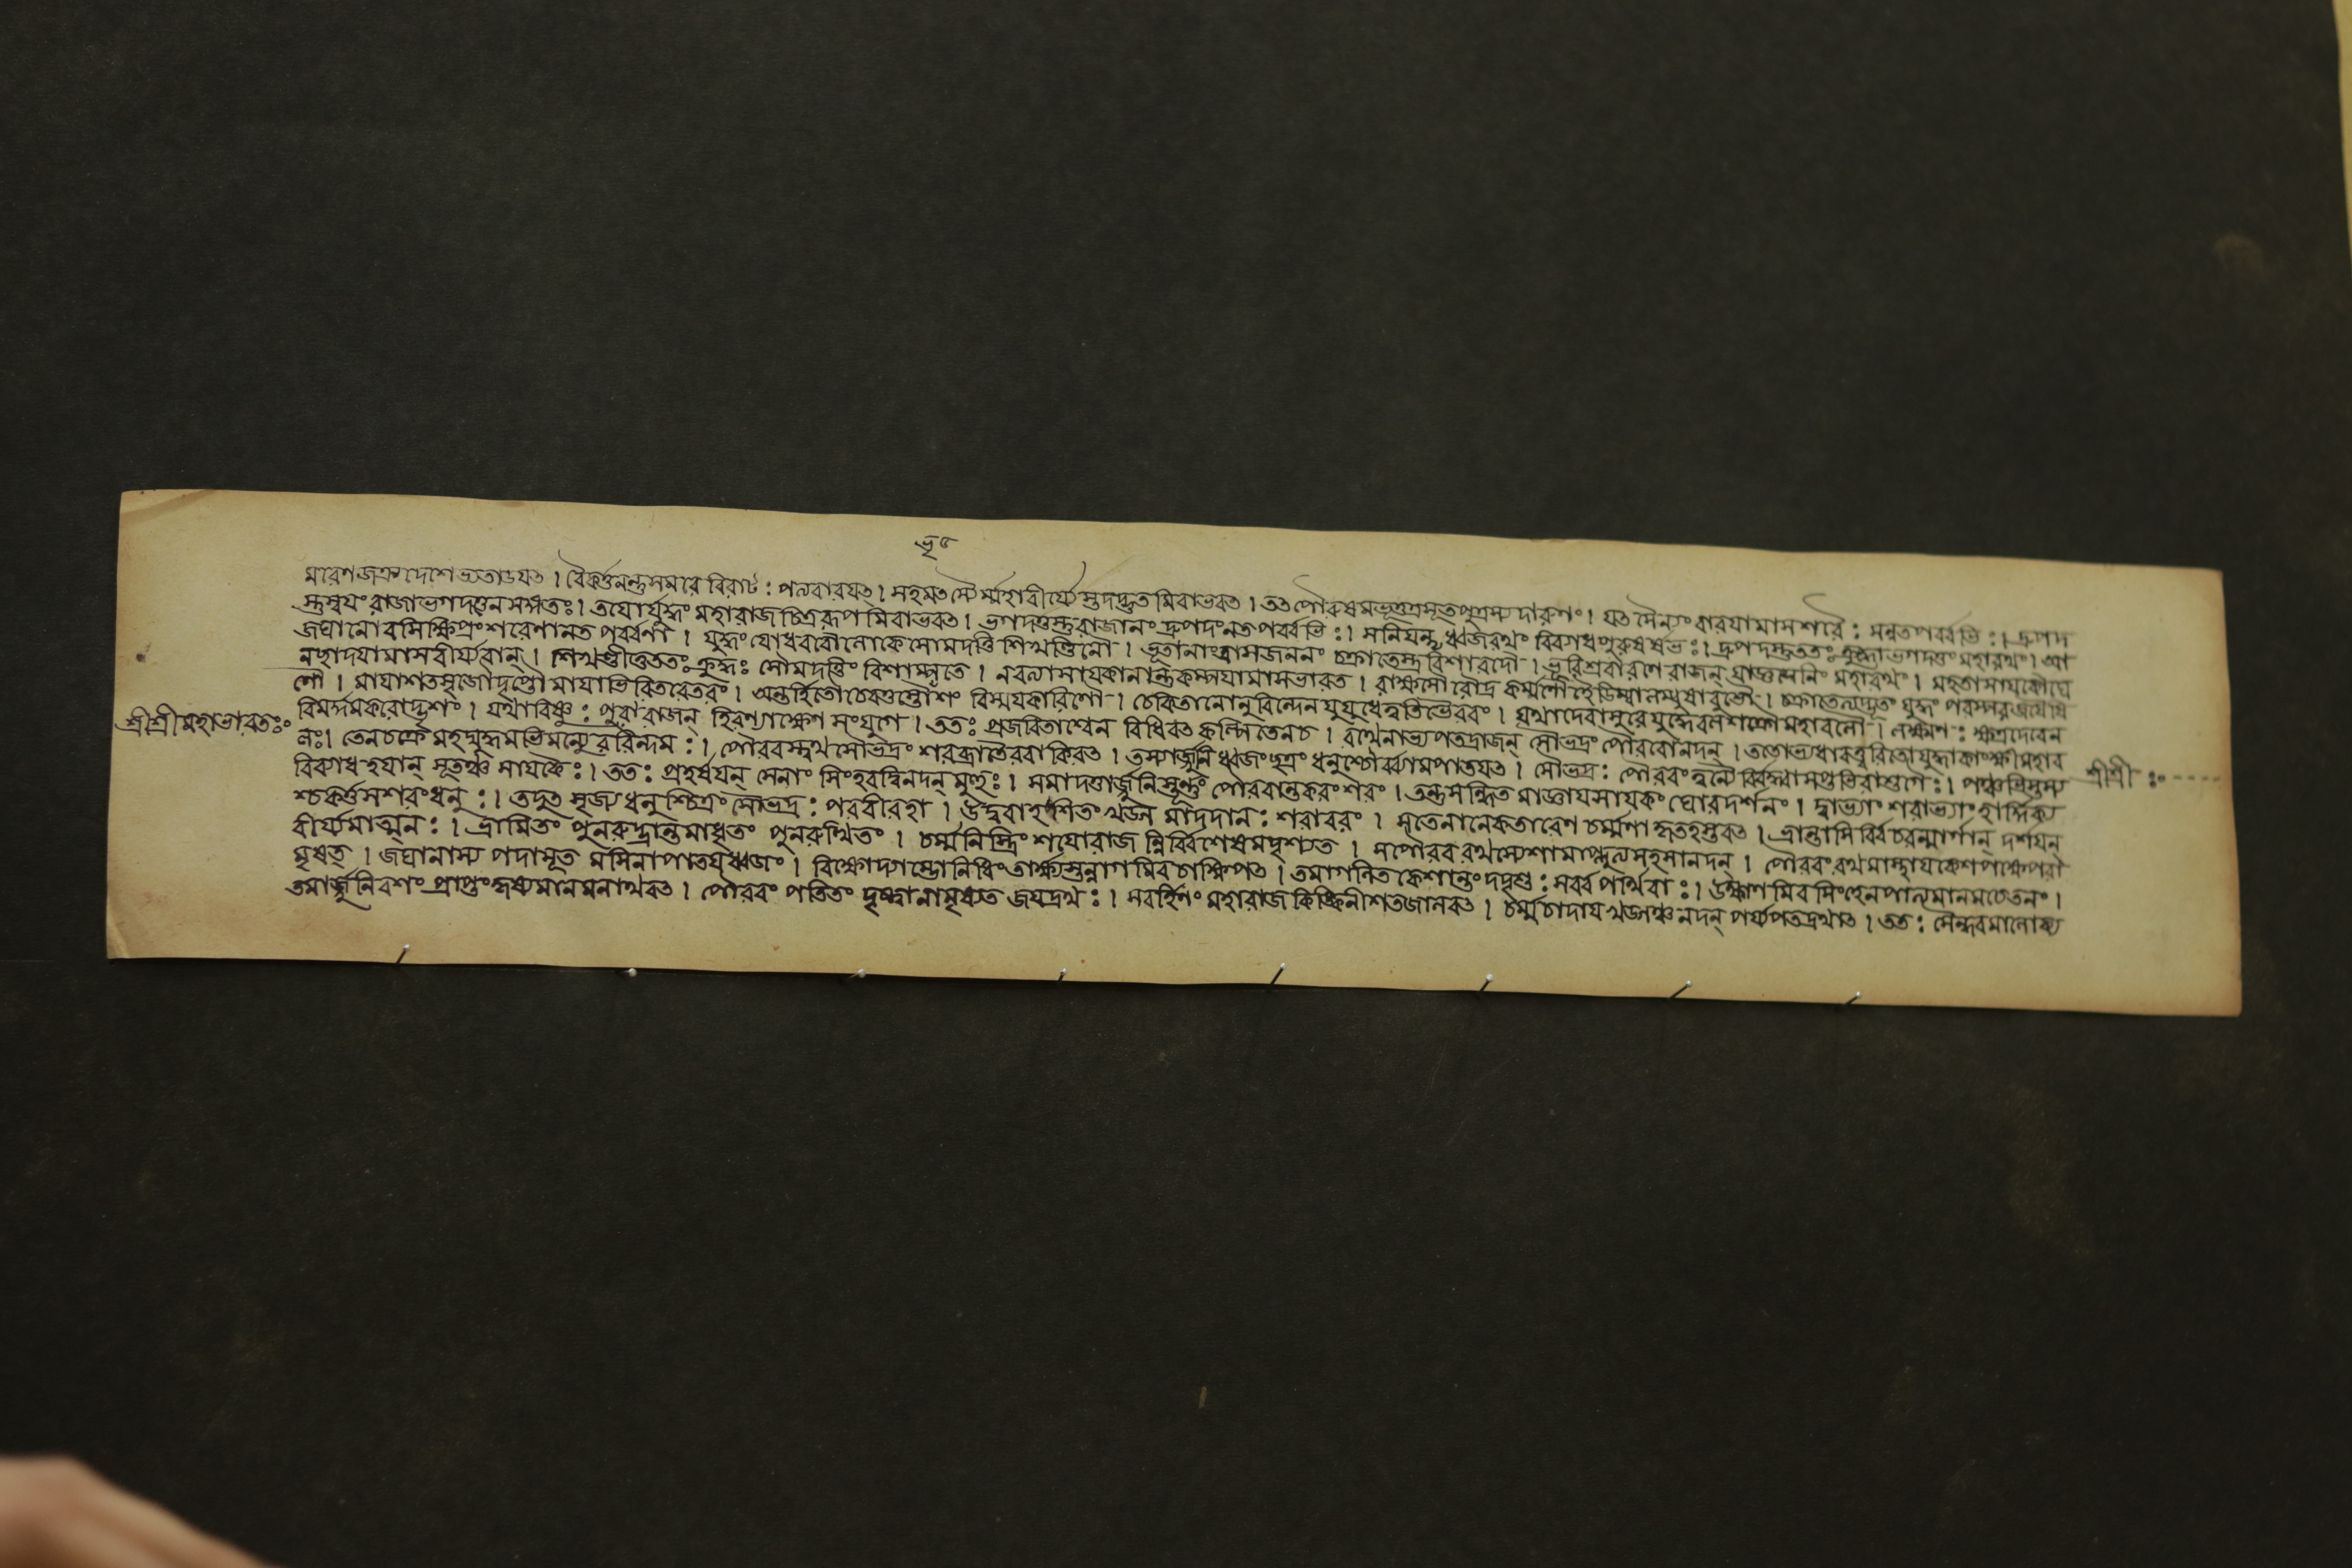 ভৃ৫
মরেণ জত্রুদেশেভ্যতাডযৎ । বৈকর্ত্তনন্তুসমরে বিরাটঃ পত্যবারযৎ । সহমৎস্যৈর্ম্মহাবীর্য্যৈস্তদদ্ভুতমিবাভবত । তৎপৌরুষমভূত্তত্রসূতপুত্রস্যদারুণং । যৎসৈন্যং বারযামাসশরৈঃ সন্নতপর্ব্বভিঃ । দ্রুপদ
স্তুস্বযং রাজাভগদত্তেনসঙ্গতঃ । তযোর্যুদ্ধং মহারাজচিত্ররূপমিবাভবত । ভগদত্তস্তুরাজানং দ্রুপদংনতপর্ব্বভিঃ । সনিযন্তৃধ্বজরথং বিব্যাধপুরুষর্ষভঃ । দ্রুপদস্তুততঃ ক্রুদ্ধোভগদত্তংমহারথং । আ
জঘানোরসিক্ষিপ্রংশরেণানতপর্ব্বণা । যুদ্ধংযোধবরৌলোকেসোমদত্তিশিখণ্ডিনৌ । ভূতানাংত্রাসজননং চক্রাতেস্ত্রবিশারদৌ । ভূরিশ্রবারণেরাজন্ যাজ্ঞসেনিং মহারথং । মহতাসাযকৌঘে
নছাদযামাসবীর্য্যবান্ । শিখণ্ডীতুততঃ ক্রুদ্ধঃ সৌমদত্তিং বিশাম্পতে । নবত্যাসাযকানান্তুকম্পযামাসভারত । রাক্ষসৌরৌদ্রকর্ম্মাণৌহৈডিম্বালম্বুষাবুভৌ । চক্রাতেত্যদ্ভুতং যুদ্ধং পরস্পরজযৈষি
ণৌ । মাযাশতসৃজৌদৃপ্তৌমাযাভিরিতরেতরং । অন্তর্হিতৌচেরতুস্তৌভৃশং বিস্মযকারিণৌ । চেকিতানোনুবিন্দেনযুযুধেত্বতিভৈরবং । যথাদেবাসুরেযুদ্ধেবলশক্রৌমহাবলৌ । লক্ষ্মণঃ ক্ষত্রদেবেন
বিমর্দ্দমকরোদ্ভৃশং । যথাবিষ্ণুঃ পুরারাজন্ হিরণ্যাক্ষেণ সংযুগে । ততঃ প্রজবিতাশ্বেন বিধিবৎকল্পিতেনচ । রথেনাভ্যপতদ্রাজন্ সৌভদ্রং পৌরবোনদন্ । ততোভ্যধাবত্ত্বরিতোযুদ্ধাকাংক্ষীমহাব
শ্রীশ্রীমহাভারতঃঃ
লঃ । তেনচক্রেমহদ্যুদ্ধমভিমন্যুররিন্দমঃ । পৌরবস্ত্বথসৌভদ্রং শরব্রাতৈরবাকিরৎ । তস্যার্জ্জুনির্ধ্বজংছত্রং ধনুশ্চোর্ব্ব্যামপাতযৎ । সৌভদ্রঃ পৌরবংত্বন্যৈর্বিদ্ধ্বাসপ্তভিরাশুগৈঃ । পঞ্চভিস্তস্য
শ্রীশ্রীঃঃ
বিব্যাধহযান্ সূতঞ্চ সাযকৈঃ । ততঃ প্রহর্ষযন্ সেনাং সিংহবদ্বিনদন্ মুহুঃ । সমাদত্তার্জ্জুনিস্তূর্ণং পৌরবান্তকরংশরং । তন্তুসন্ধিতমাজ্ঞাযসাযকং ঘোরদর্শনং । দ্বাভ্যাং শরাভ্যাংহার্দ্দিক্য
শ্চকর্ত্তসশরংধনুঃ । তদুৎসৃজ্যধনুশ্চিত্রং সৌভদ্রঃ পরবীরহা । উদ্ববার্হশিতংখড্গমাদদানঃ শরাবরং । সতেনানেকতারেণচর্ম্মণাকৃতহস্তবৎ । ভ্রান্তাসির্ব্বিচরন্মার্গান্ দর্শযন্
বীর্য্যমাত্মনঃ । ভ্রামিতং পুনরুদ্ভ্রান্তমাধূতং পুনরুত্থিতং । চর্ম্মনিস্ত্রিংশযোরাজন্নির্ব্বিশেষমদৃশ্যত । সপৌরবরথস্যেশামাপ্লুত্যসহসানদন্ । পৌরবংরথমাস্থাযকেশপক্ষেপরা
মৃষৎ । জঘানাস্য পদাসূতমসিনাপাতযদ্ধ্বজং । বিক্ষোভ্যাম্ভোনিধিংতার্ক্ষ্যস্তন্নাগমিবচাক্ষিপৎ । তমাগলিতকেশান্তংদদৃশুঃ সর্ব্বপার্থিবাঃ । উক্ষাণমিবসিংহেনপাত্যমানমচেতনং ।
তমার্জ্জুনিবশংপ্রাপ্তংকৃষ্যমানমনাথবৎ । পৌরবং পতিতং দৃষ্ট্বানামৃষ্যতজযদ্রথঃ । সবর্হিণং মহারাজকিঙ্কিনীশতজালবৎ । চর্ম্মচাদাযখড্গঞ্চনদন্ পর্য্যপতদ্রথাৎ । ততঃ সৈন্ধবমালোক্য